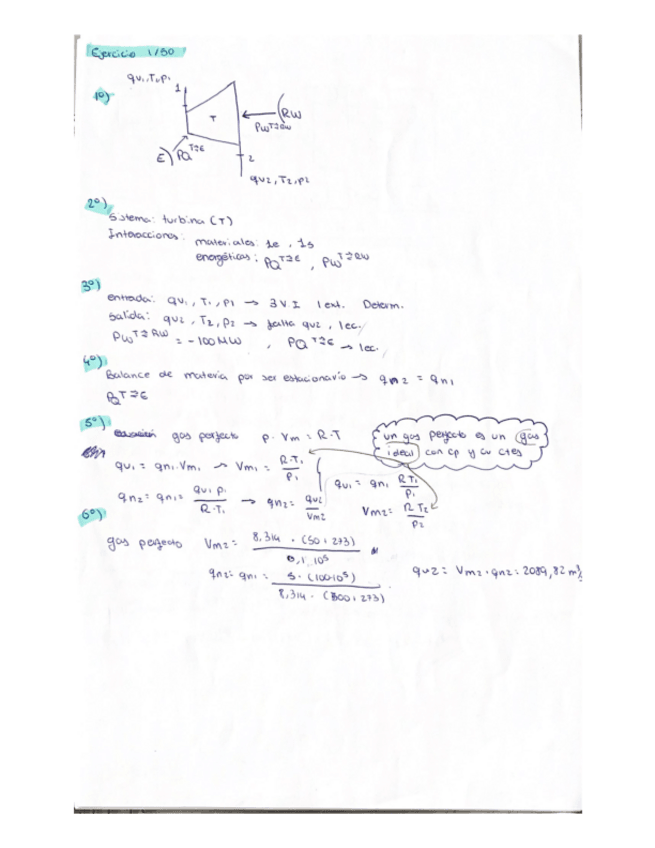 Ejercicio 1/50
qv1, T1, p1
1º)
1
T
RW
PW T⇄RW
E) PQ T⇄E
2
qv2, T2, p2
2º)
Sistema: turbina (T)
Interacciones: materiales: 1e, 1s
energéticas: PQ T⇄E, PW T⇄RW
3º)
entrada: qv1, T1, p1 → 3 V I 1 ext. Determ.
Salida: qv2, T2, p2 → falta qv2, 1ec.
PW T⇄RW = -100MW, PQ T⇄E → 1ec.
4º)
Balance de materia por ser estacionario → qn2 = qn1
PQ T⇄E
5º)
gas perfecto p · Vm = R·T
un gas perfecto es un gas
ideal con cp y cv ctes
qv1 = qn1·Vm1 → Vm1 = R·T1/p1
qv1 = qn1 RT1/p1
qn2 = qn1 = qv1 p1/R·T1 → qn2 = qv2/Vm2
Vm2 = RT2/p2
6º)
gas perfecto Vm2 = 8,314 · (50+273)/0,1·10⁵
qn2 = qn1 = 5·(100·10⁵)/8,314 · (500+273)
qv2 = Vm2·qn2 = 2089,82 m³/